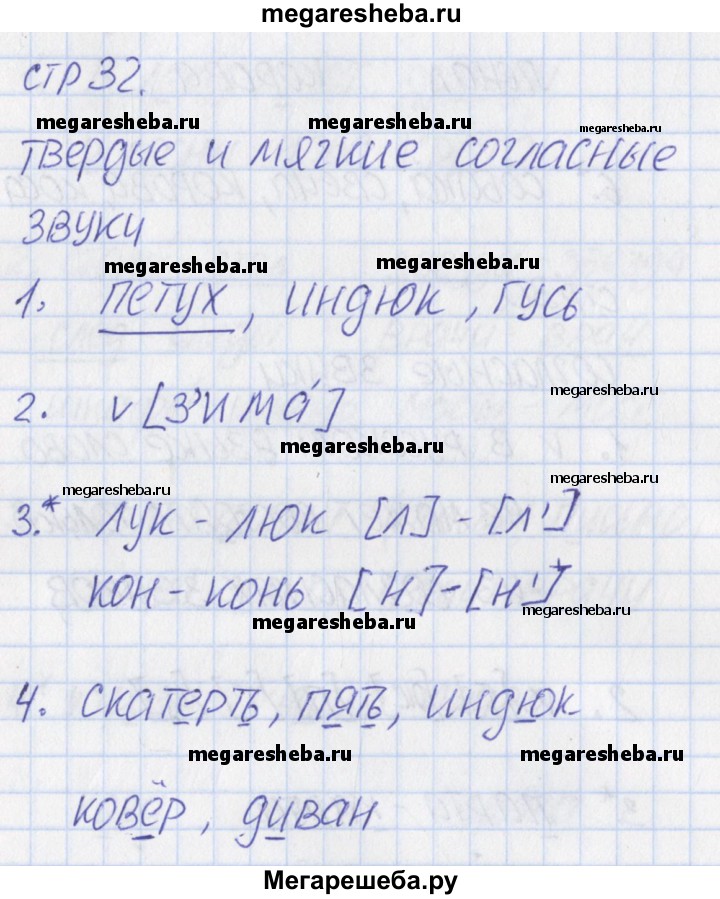 megaresheba.ru
стр 32.
megaresheba.ru megaresheba.ru megaresheba.ru
твердые и мягкие согласные
звуки
megaresheba.ru megaresheba.ru
1. петух, индюк, гусь
megaresheba.ru
2. v [з'има́]
megaresheba.ru megaresheba.ru
megaresheba.ru
3.* лук - люк [л] - [л']
кон - конь [н] - [н']
megaresheba.ru megaresheba.ru
4. скатерть, пять, индюк
megaresheba.ru megaresheba.ru
ковёр, диван
Мегарешеба.ру